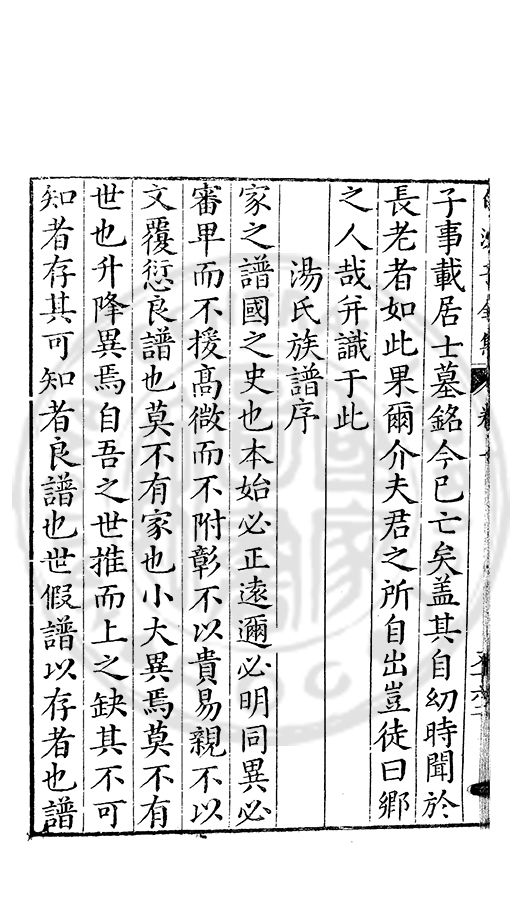 子事載居士墓銘今已亡矣盖其自幼時聞於
長老者如此果爾介夫君之所自出豈徒曰鄉
之人哉并識于此
湯氏族譜序
家之譜國之史也本始必正遠邇必明同異必
審卑而不援高微而不附彰不以貴易親不以
文覆愆良譜也莫不有家也小大異焉莫不有
世也升降異焉自吾之世推而上之缺其不可
知者存其可知者良譜也世假譜以存者也譜